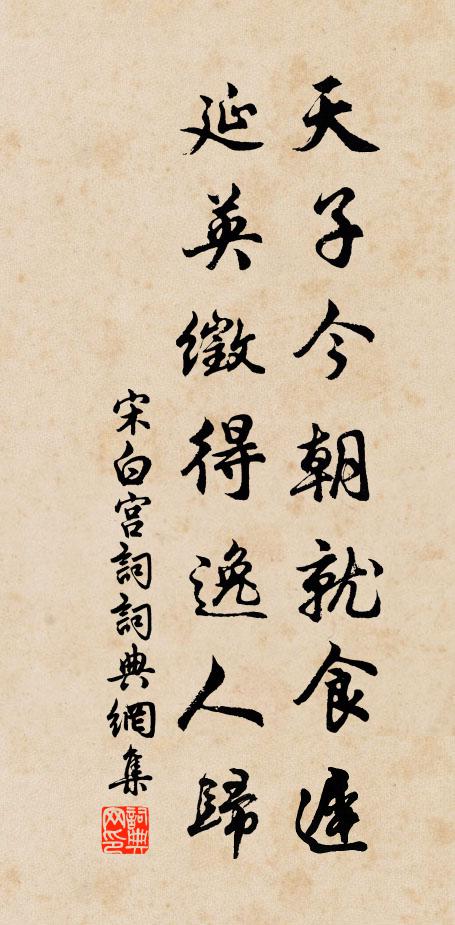 天子今朝就食遲
延英徵得逸人歸
宋白宮詞詞典網集
詞典网印